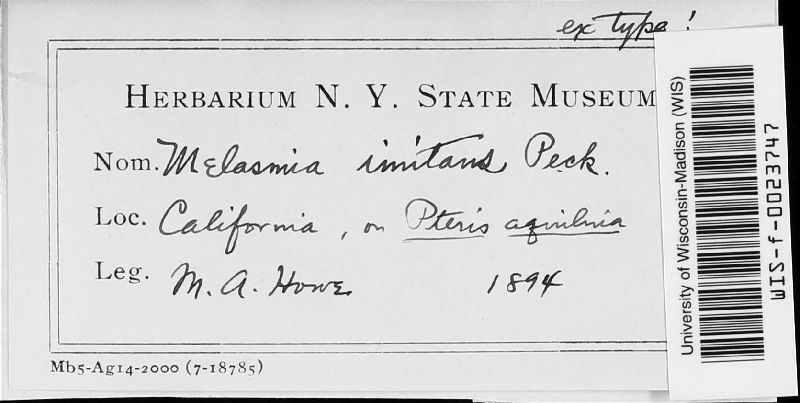 ex type!
HERBARIUM N. Y. STATE MUSEUM
Nom. Melasmia imitans Peck.
Loc. California, on Pteris aquilinia
Leg. M. A. Howe 1894
Mb5-Ag14-2000 (7-18785)
University of Wisconsin-Madison (WIS)
WIS-f-0023747